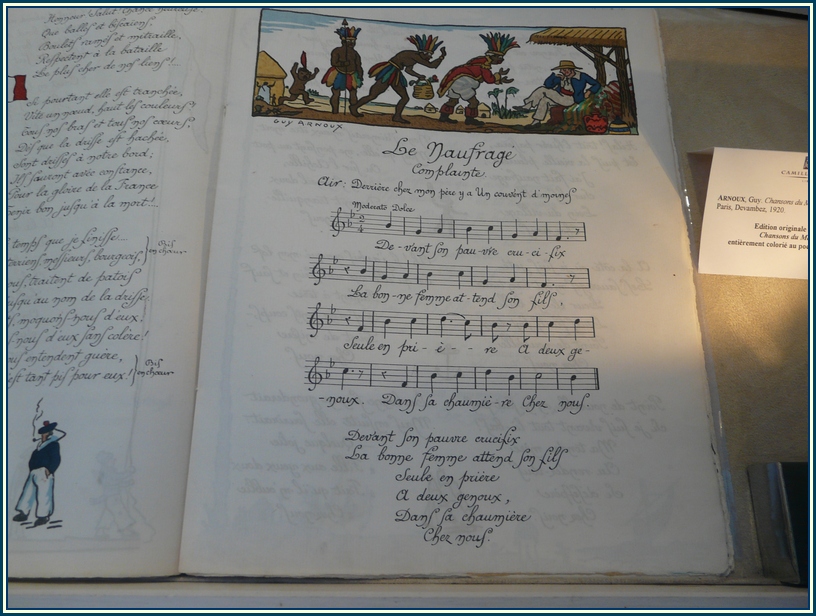 Honneur Salut
Que balles et biscaïens,
Boulets ramés et mitraille,
Respectent à la bataille
Le plus cher de nos liens!..
Si pourtant elle est tranchée,
Vite un nœud, haut les couleurs!
Tous nos bras et tous nos cœurs,
Dès que la drisse est hachée,
Sont dressés à notre bord;
Ils sauront avec constance,
Pour la gloire de la France
tenir bon jusqu'à la mort!..
temps que je finisse...
terriens, messieurs, bourgeois,
vous, traitent de patois
jusqu'au nom de la drisse.
moquons nous d'eux.
nous d'eux sans colère!
entendent guère,
est tant pis pour eux!
Bis
en chœur
Bis
en chœur
GUY ARNOUX
Le Naufragé
Complainte.
Air: Derrière chez mon père y a Un couvent d'moines
Moderato Dolce
De-vant son pau-vre cru-ci-fix
La bon-ne femme at-tend son fils,
Seule en pri-è--re A deux ge-
-noux. Dans sa chaumiè-re Chez nous.
Devant son pauvre crucifix
La bonne femme attend son fils
Seule en prière
A deux genoux,
Dans sa chaumière
Chez nous.
CAMILL
ARNOUX, Guy. Chansons du M
Paris, Devambez, 1920.
Edition originale
Chansons du M
entièrement colorié au po